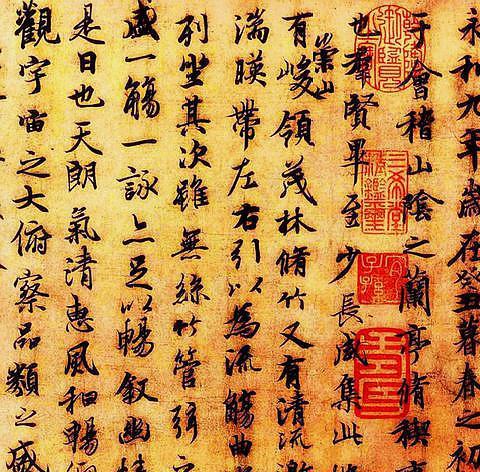 永和九年歲在癸丑暮春之初
于會稽山陰之蘭亭脩禊
也羣賢畢至少長咸集此
有崇山峻領茂林脩竹又有清流激
湍暎帶左右引以為流觴曲
列坐其次雖無絲竹管弦
盛一觴一詠亦足以暢敘幽情
是日也天朗氣清惠風和暢
觀宇宙之大俯察品類之盛
三希堂精鑑璽
宜子孫